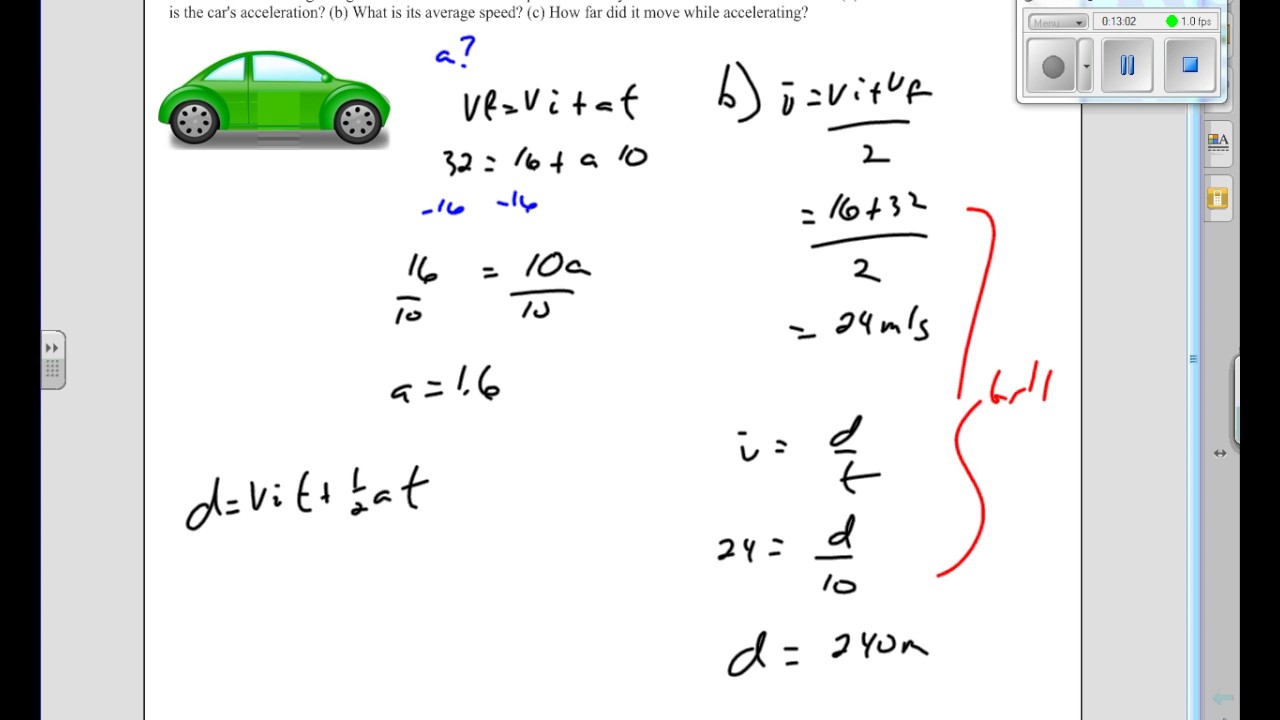 is the car's acceleration? (b) What is its average speed? (c) How far did it move while accelerating?
Menu
0:13:02
1.0 fps
a?
vf=vi+at
32 = 16 + a 10
-16 -16
16 = 10a
10 10
a = 1.6
d=vit+½at
b) v̄ = vi+vf
2
= 16+32
2
= 24m/s
v̄ = d
t
24 = d
10
d = 240m
A